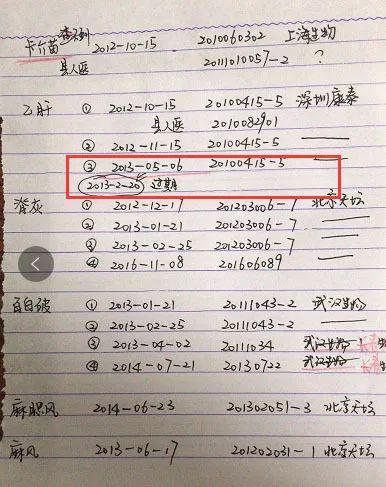 查不到
卡介苗 2012-10-15 2010060302 上海生物
县人医 2011010057-2 ?
乙肝 ① 2012-10-15 20100415-5 深圳康泰
县人医 2010082901
② 2012-11-15 20100415-5
③ 2013-05-06 20100415-5
2013-2-20 过期
脊灰 ① 2012-12-17 201203006-7 北京天坛
② 2013-01-21 201203006-7
③ 2013-02-25 201203006-7
④ 2016-11-08 201606089
百白破 ① 2013-01-21 20111043-2 武汉生物
② 2013-02-25 20111043-2
③ 2013-04-02 20111034 武汉生物 长春
④ 2014-07-21 20130722 武汉生物 长春
麻腮风 2014-06-23 201302051-3 北京天坛
麻风 2013-06-17 201202031-1 北京天坛